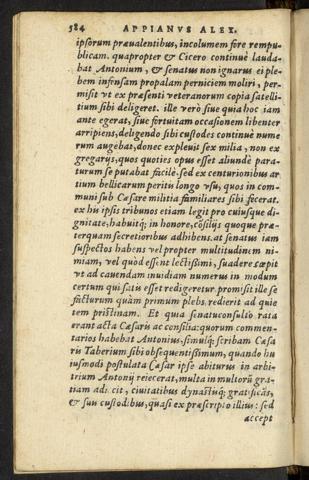 584 APPIANVS ALEX.
ipsorum præualentibus, incolumem fore rempu-
blicam. quapropter & Cicero continuè lauda-
bat Antonium, & senatus non ignarus ei ple-
bem infensam propalam perniciem moliri, per-
misit vt ex præsenti veteranorum copia satelli-
tium sibi deligeret. ille verò siue quia hoc iam
ante egerat, siue fortuitam occasionem libenter
arripiens, deligendo sibi custodes continuè nume
rum augebat, donec expleuit sex milia, non ex
gregarijs, quos quoties opus esset aliundè para-
turum se putabat facilè: sed ex centurionibus ar
tium bellicarum peritis longo vsu, quos in com-
muni sub Cæsare militia familiares sibi fecerat.
ex his ipsis tribunos etiam legit pro cuiusque di-
gnitate, habuitq; in honore, cōsilijs quoque præ-
terquam secretioribus adhibens. at senatus iam
suspectos habens vel propter multitudinem ni-
miam, vel quòd essent lectissimi, suadere cœpit
vt ad cauendam inuidiam numerus in modum
certum qui satis esset redigeretur. promisit ille se
facturum quàm primum plebs rediret ad quie
tem pristinam. Et quia senatusconsulto rata
erant acta Cæsaris ac consilia: quorum commen-
tarios habebat Antonius, simulq; scribam Cæsa
ris Taberium sibi obsequentissimum, quando hu
iusmodi postulata Cæsar ipse abiturus in arbi-
trium Antonij reiecerat, multa in multorū gra-
tiam adiecit, ciuitatibus dynastisq; gratificās,
& suis custodibus, quasi ex præscripto illius: sed
accept